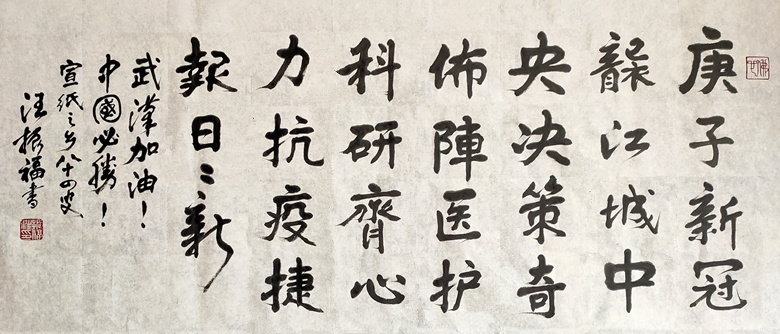 庚子新冠
襲江城中
央决策奇
佈陣医护
科研齊心
力抗疫捷
報日〻新
武漢加油！
中國必勝！
宣紙之乡八十四叟
汪振福書